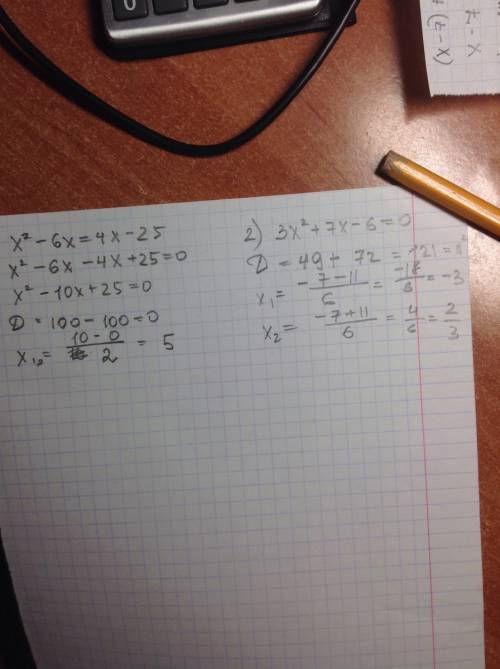 x² - 6x = 4x - 25
x² - 6x - 4x + 25 = 0
x² - 10x + 25 = 0
D = 100 - 100 = 0
x₁,₂ = (10 - 0)/2 = 5
2) 3x² + 7x - 6 = 0
D = 49 + 72 = 121 = 11²
x₁ = (-7 - 11)/6 = -18/6 = -3
x₂ = (-7 + 11)/6 = 4/6 = 2/3
0
7 - x
(x - 7)